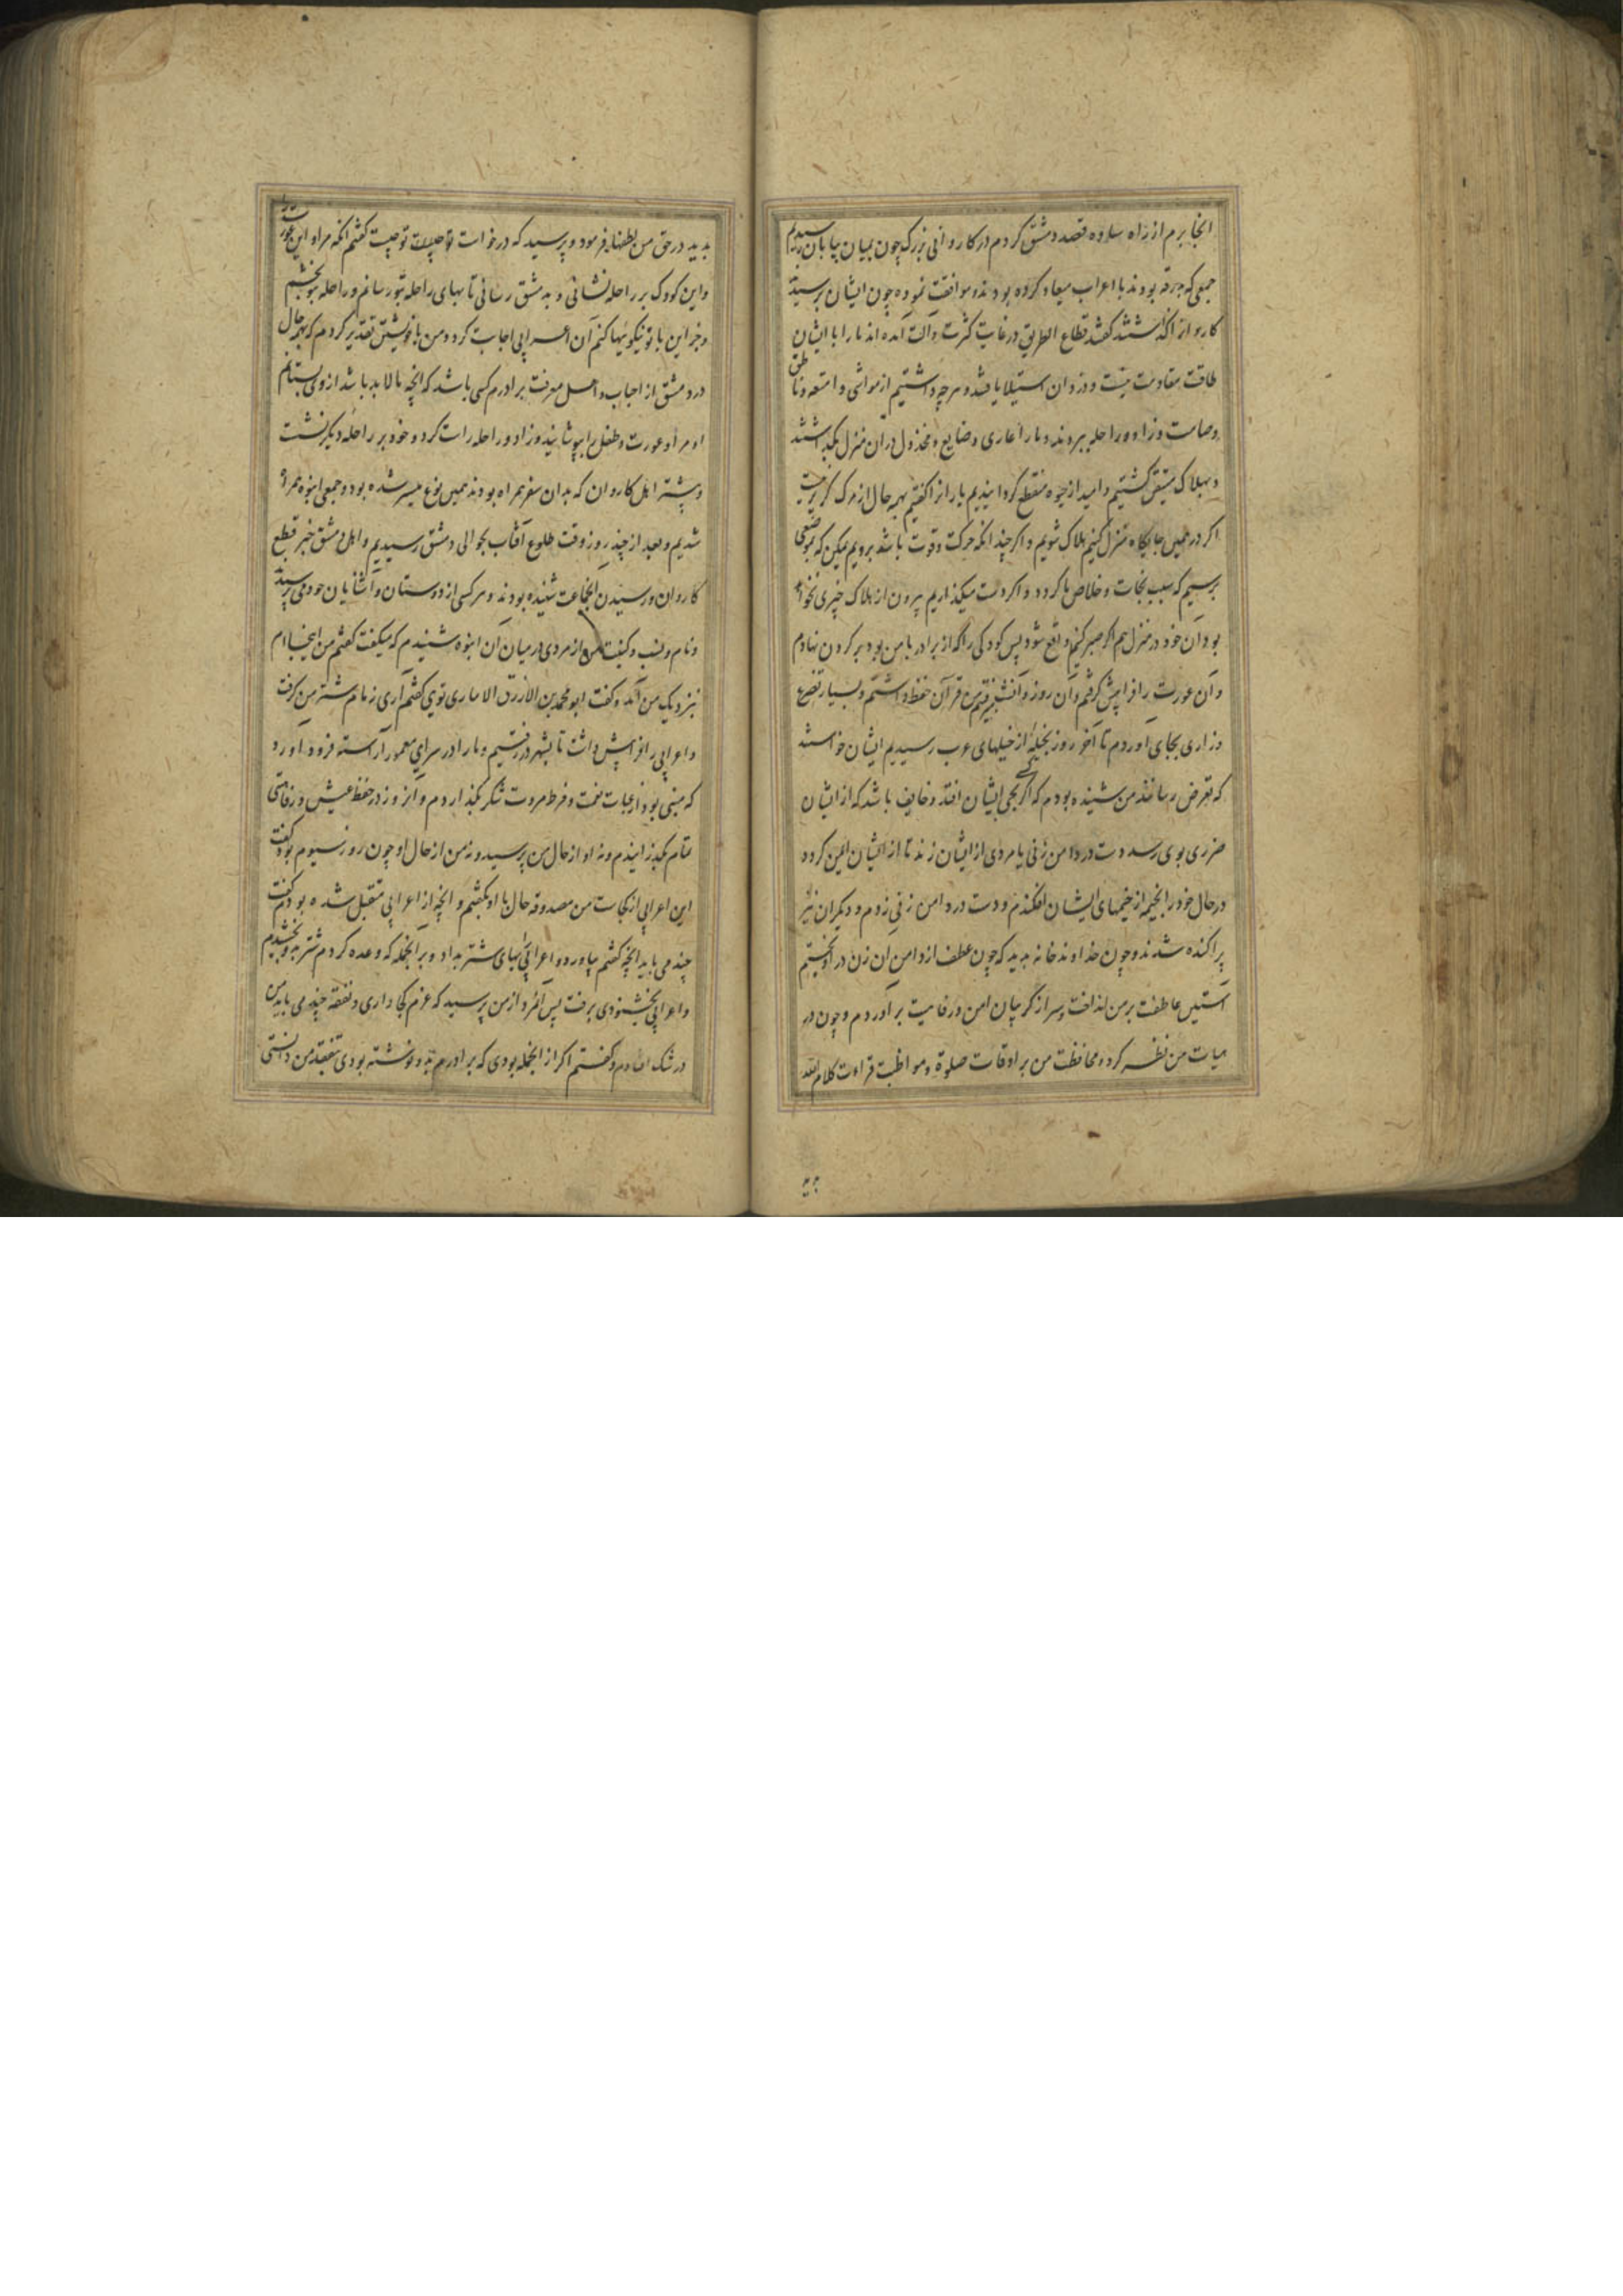 انجا برم از راه ساوه قصد دمشق کردم در کاروانی بزرک چون بمیان بیابان رسیدیم
جمعی که بدرقه بودند با اعراب میعاد کرده بودند و موافقت نموده چون ایشان برسیدند
کاروان را کفتند قطاع الطریق در غایت کثرت و آلت آمده اند ما را با ایشان
طاقت مقاومت نیست و دزدان استیلا یافتند و هر چه داشتیم از مواشی و امتعه و ناطق
وصامت و زاد و راحله ببردند و ما را عاری و ضایع و مخذول در آن منزل بکذاشتند
و بهلاک متیقن کشتیم و امید از حیوه منقطع کردانیدیم یاران را کفتم بهر حال از مرک کریز نیست
اکر در همین جایکاه منزل کنیم هلاک شویم و اکر چندانکه حرکت و قوت باشد برویم یمکن که بموضعی
برسیم که سبب نجات و خلاص ما کردد و اکر دست میکذاریم بیرون از هلاک چیزی نخواهد
بود آن خود در منزل هم اکر صبر کنیم واقع شود پس کودکی را که از برادر با من بود بر کردن نهادم
و آن عورت را فرا پیش کرفتم و آن روز و آنشب برفتم من قرآن حفظ داشتم و بسیار تضرع
و زاری بجای آوردم تا آخر روز بخیلی از خیلهای عرب رسیدیم ایشان خواستند
که تعرض رسانند من شنیده بودم که اکر کسی بحی ایشان افتد و خایف باشد که از ایشان
ضرری بوی رسد دست در دامن زنی یا مردی از ایشان زند تا از ایشان ایمن کردد
در حال خود را بخیمه از خیمهای ایشان افکندم و دست در دامن زنی زدم و دیکران نیز
پراکنده شدند و چون خداوند خانه بدید که چون عطف از دامن آن زن در آویختیم
آستین عاطفت بر من انداخت و سر از کریبان امن و رفاهیت برآوردم و چون در
هیات من نظر کرد و محافظت من بر اوقات صلوة و مواظبت قراءت کلام الله
بدید در حق من لطفها بفرمود و پرسید که درخواست تو چیست کفتم آنکه مرا و این عورت را
و این کودک بر راحله نشانی و بدمشق رسانی تا بهای راحله بتو رسانم و راحله بتو بخشم
و جز این با تو نیکوئیها کنم آن اعرابی اجابت کرد و من با خویشتن تقدیر کردم که بهمه حال
در دمشق از احباب و اهل معرفت برادرم کسی باشد که آنچه مالابد باشد از وی بستانم
او مرا و عورت و طفل را بپوشانید و زاد و راحله راست کرد و خود بر راحله دیکر نشست
و بیشتر اهل کاروان که بدان سفر همراه بودند همین نوع میسر شده بود و جمعی انبوه همراه
شدیم و بعد از چند روز وقت طلوع آفتاب بحوالی دمشق رسیدیم و اهل دمشق خبر قطع
کاروان و رسیدن آنجماعت شنیده بودند و هر کسی از دوستان و آشنایان خود می پرسیدند
و نام و نسب و کنیت من از مردی در میان آن انبوه شنیدم که میکفت کفتم من اینجا ام
بنزدیک من آمد و کفت ابو محمد بن الازرق الانباری تویی کفتم آری زمام شتر من کرفت
و اعرابی را فرا پیش داشت تا بشهر در رفتیم و ما را در سرای معمور آراسته فرود آورد
که مبنی بود از غایت نعمت و فرط مروت شکر بکذاردم و آنروز در خفض عیش و رفاهتی
تمام بکذرانیدم و نه او از حال من پرسید و نه من از حال او چون روز سیوم بود کفت
این اعرابی از کجاست من مصدوقه حال با او بکفتم و آنچه از اعرابی متقبل شده بودم کفت
چند می باید آنچه کفتم بیاورد و اعرابی را بهای شتر بداد و بر آنجمله که وعده کردم شتر بدو بخشیدم
و اعرابی بخشنودی برفت پس آنمرد از من پرسید که عزم کجا داری و نفقه چند می باید من
در شک افتادم و کفتم اکر از آنجمله بودی که برادرم بدو نوشته بودی تفقد من دانستی